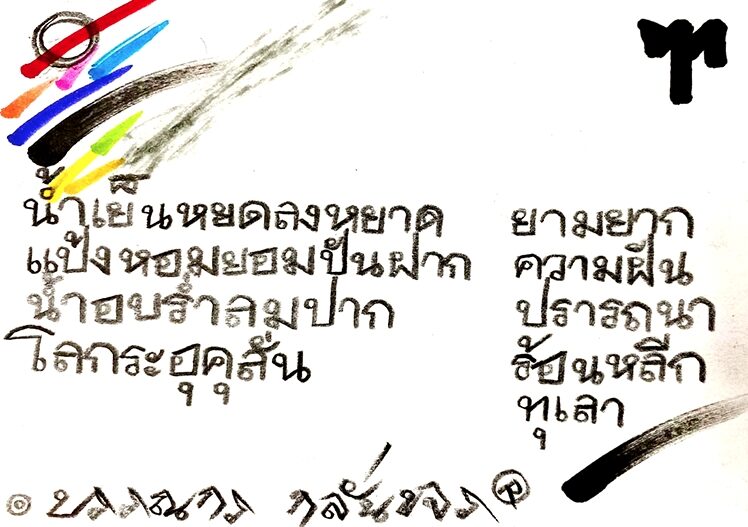 น้ำเย็นหยดลงหยาด ยามยาก
แป้งหอมยอมปันฝาก ความฝัน
น้ำอบร่ำลมปาก ปรารถนา
โลกระอุคุสั่น ร้อนหลีก
ทุเลา